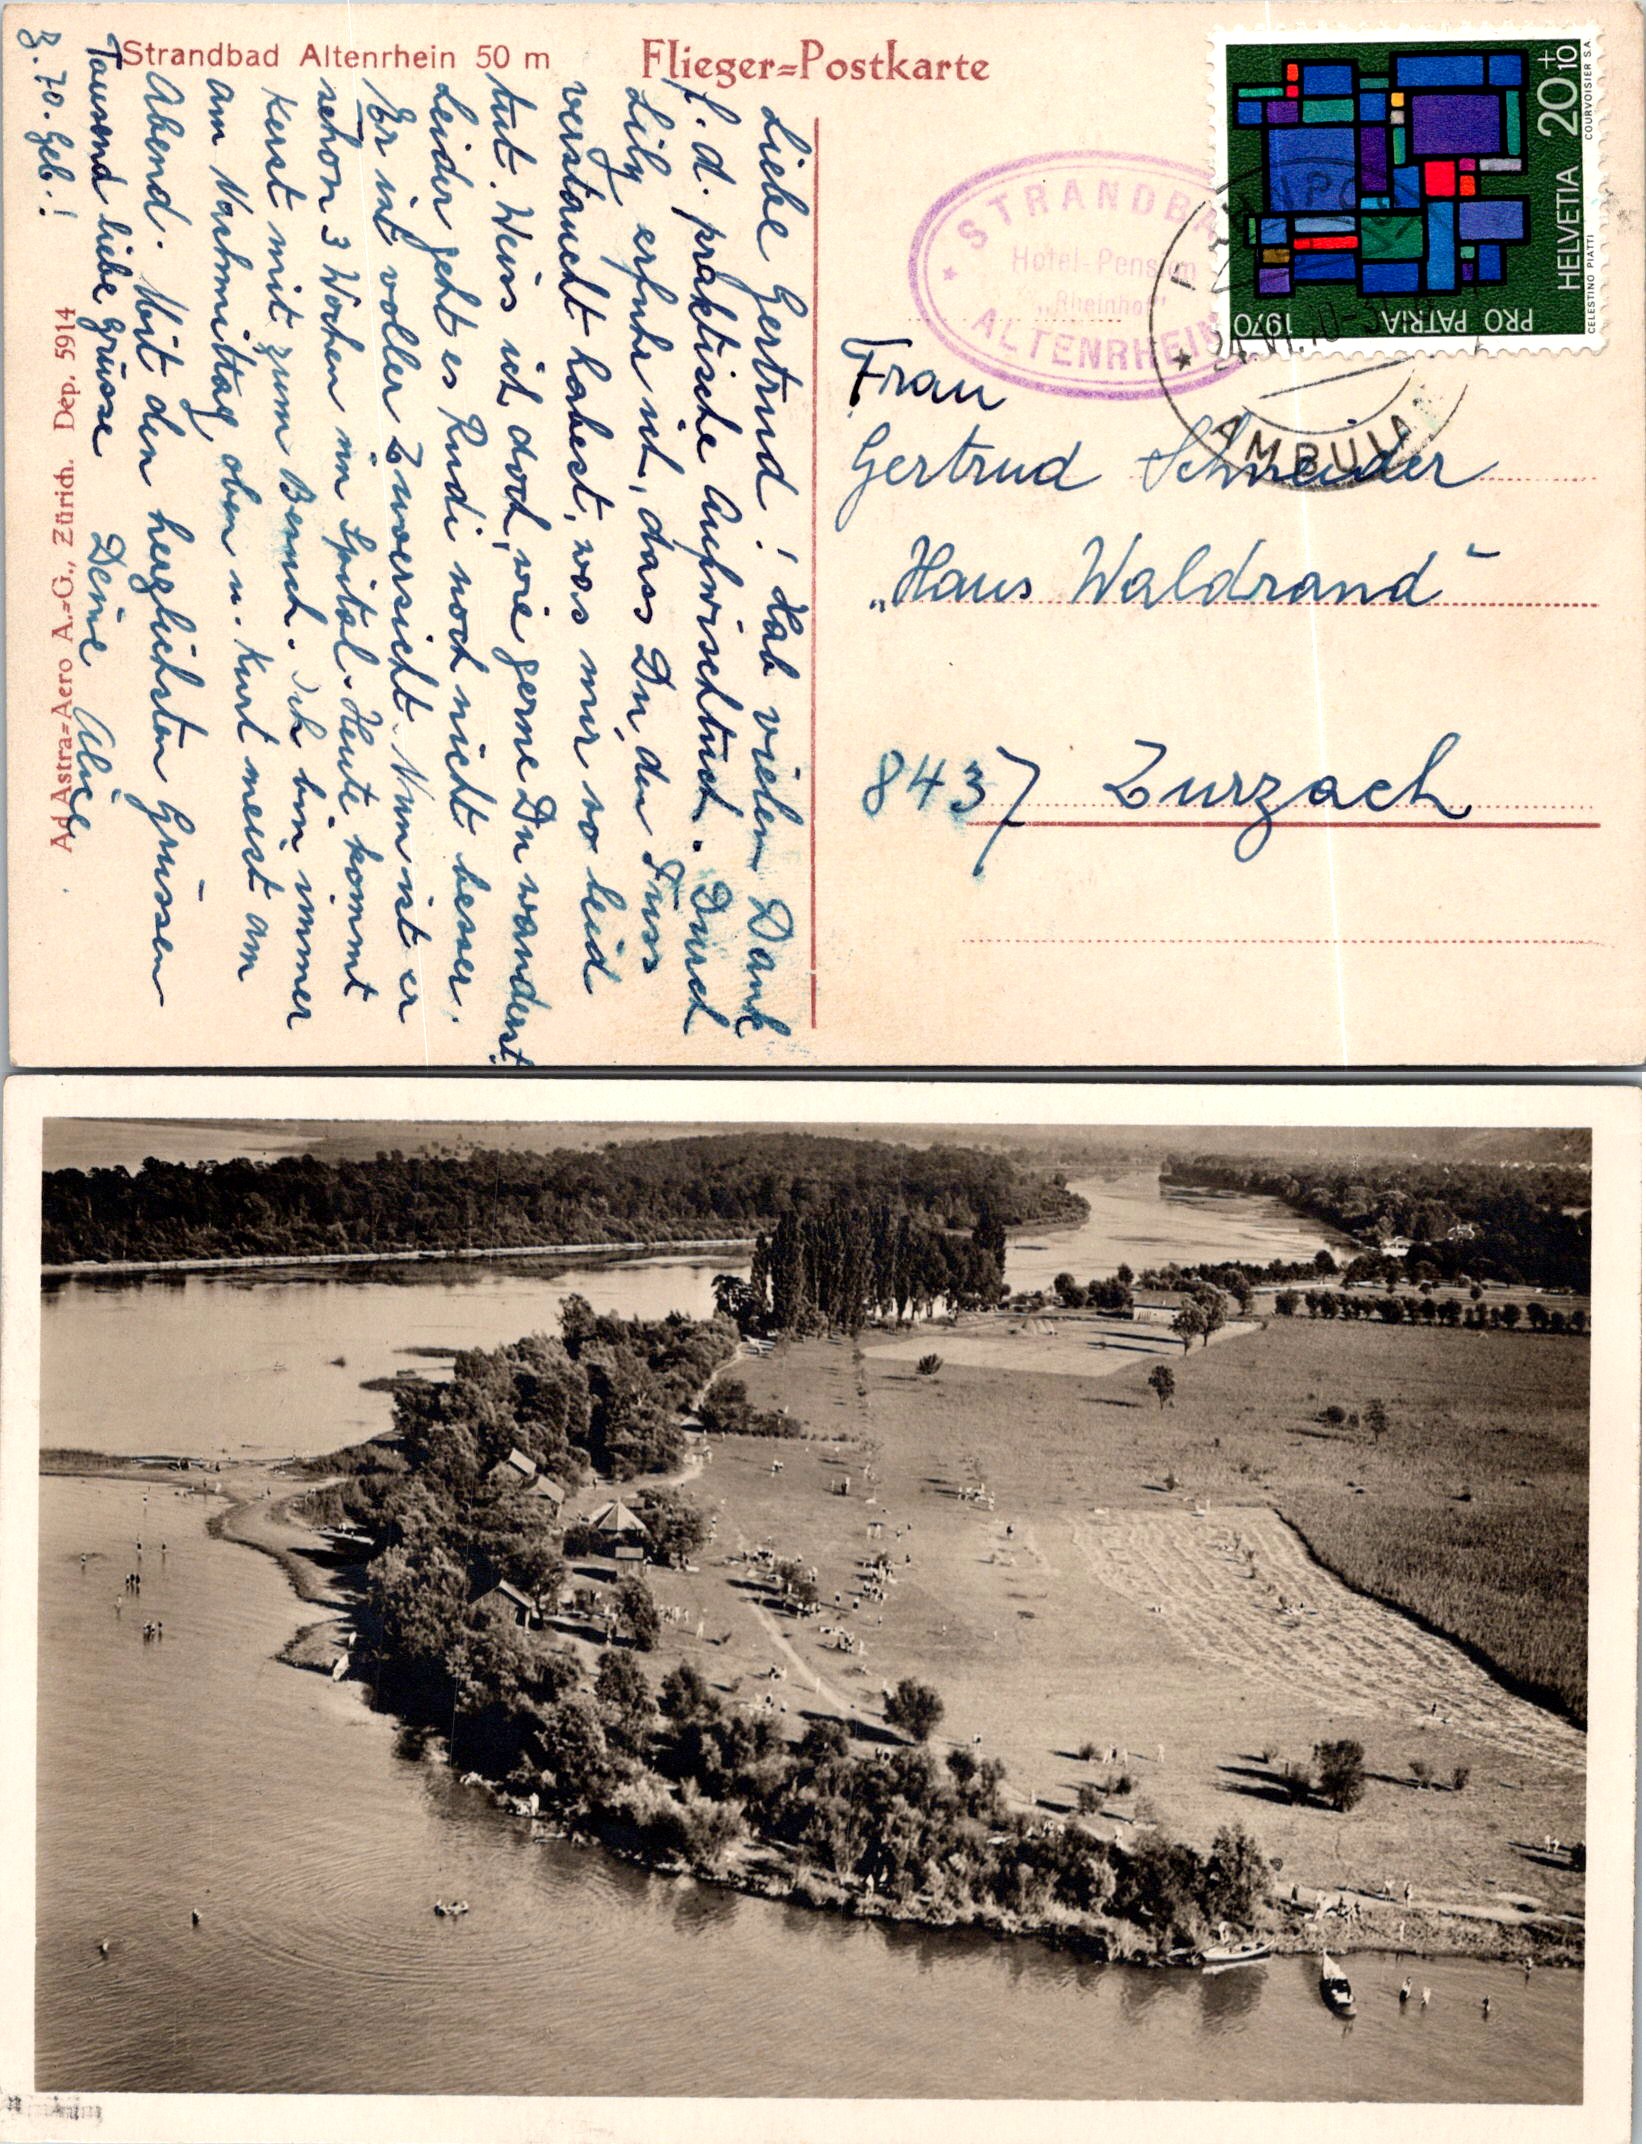 Strandbad Altenrhein 50 m
Flieger=Postkarte
Liebe Gertrud! Hab vielen Dank
f. d. praktische Aufwischtuch. Durch
Lily erfuhr ich, dass Du den Fuss
verstaucht habest, was mir so leid
tut. Weiss ich doch, wie gerne Du wanderst.
Leider geht es Rudi noch nicht besser.
Er ist voller Zuversicht. Nun ist er
schon 3 Wochen im Spital. Heute kommt
Kerst mit zum Besuch. Ich bin immer
am Nachmittag oben u. Kurt meist am
Abend. Mit den herzlichsten Grüssen
Tausend liebe Grüsse Deine Alice
z. 70. Geb.!
Ad Astra=Aero A.=G., Zürich. Dep. 5914
STRANDBA
Hotel-Pension
„Rheinhof"
ALTENRHEIN
AMBULA
HELVETIA 20+10
PRO PATRIA 1970
CELESTINO PIATTI
COURVOISIER S.A.
Frau
Gertrud Schneider
„Haus Waldrand"
8437 Zurzach